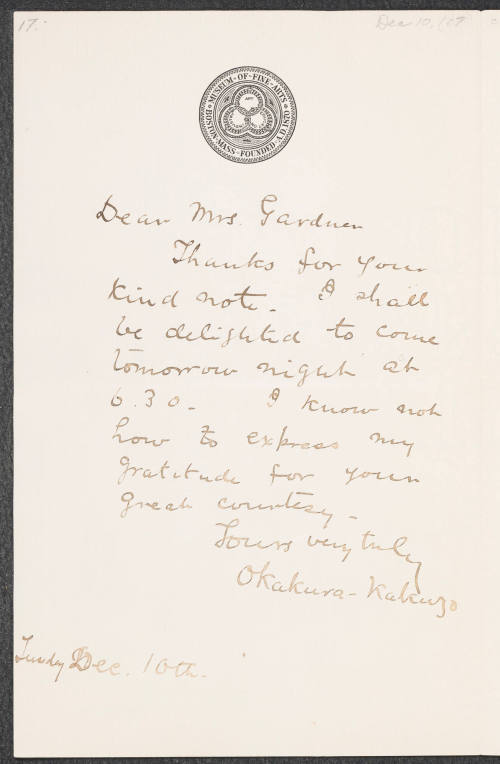 17.
Dec 10, /07
MUSEUM · OF · FINE · ARTS
BOSTON · MASS · FOUNDED · A.D. 1870
Dear Mrs. Gardner
Thanks for your
kind note. I shall
be delighted to come
tomorrow night at
6.30. I know not
how to express my
gratitude for your
great courtesy.
Yours very truly
Okakura-Kakuzo
Tuesdy Dec. 10th.